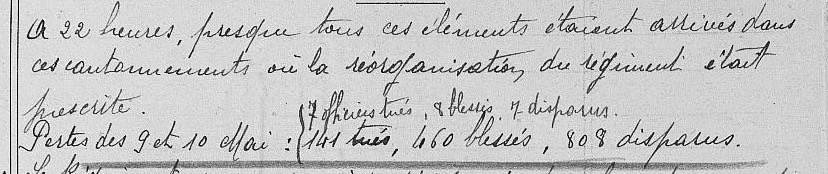 A 22 heures, presque tous ces éléments étaient arrivés dans
ces cantonnements où la réorganisation du régiment était
prescrite.
7 officiers tués, 8 blessés, 7 disparus.
Pertes des 9 et 10 Mai : 141 tués, 460 blessés, 808 disparus.